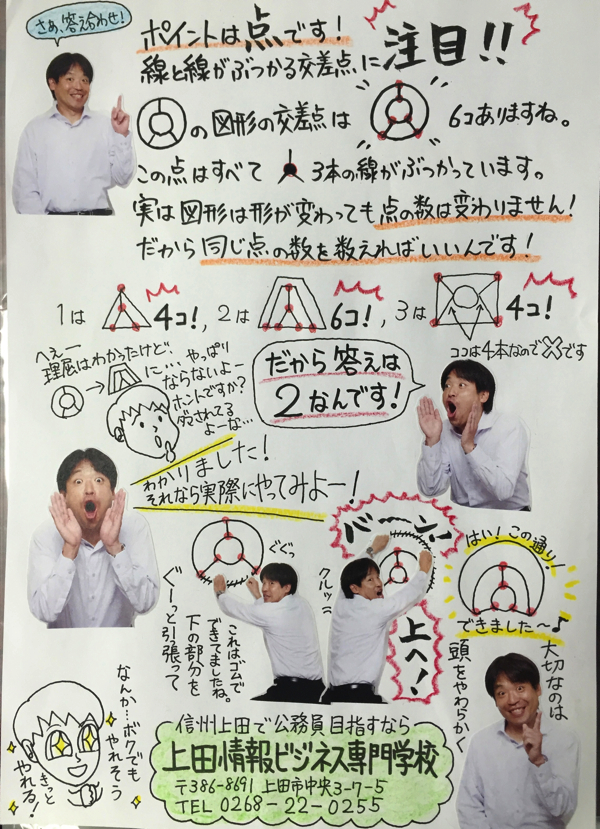 さあ、答え合わせ!
ポイントは点です!
線と線がぶつかる交差点に注目!!
の図形の交差点は 6コありますね。
この点はすべて 3本の線がぶつかっています。
実は図形は形が変わっても点の数は変わりません!
だから同じ点の数を数えればいいんです!
1は 4コ!, 2は 6コ!, 3は 4コ!
ココは4本なので×です
へぇー
理屈はわかったけど、
→ に…やっぱり
ならないよー
ホントですか?
ダマされてる
よーな…
だから答えは
2なんです!
わかりました!
それなら実際にやってみよー!
これはゴムで
できてましたね。
下の部分を
ぐーっと引っ張って
ぐぐっ
クルッ
バーーン!
上へ!
はい!この通り!
できました〜♪
大切なのは
頭をやわらかく
なんか…ボクでも
やれそう
きっと
やれる!
信州上田で公務員目指すなら
上田情報ビジネス専門学校
〒386-8691 上田市中央3-7-5
TEL 0268-22-0255